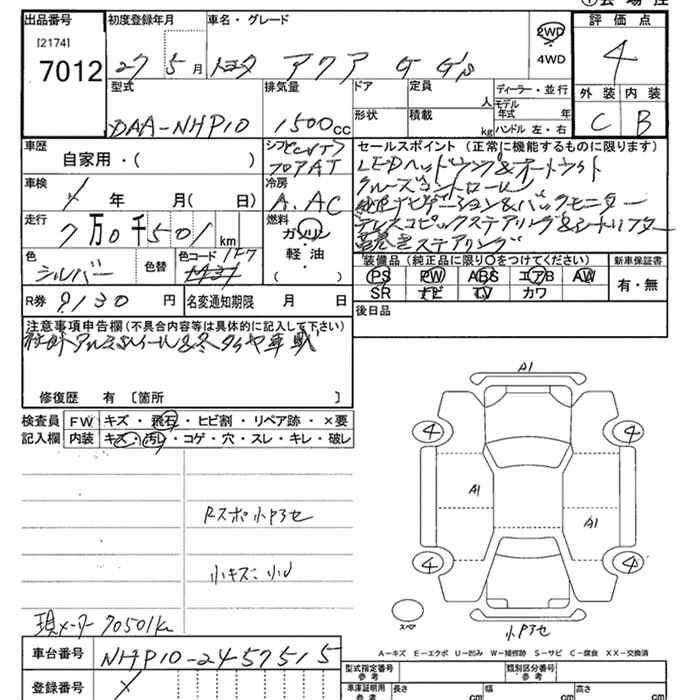 出品番号 初度登録年月 車名・グレード 評価点
[2174]
7012 27 5月 トヨタ アクア G G's 2WD 4
4WD
型式 排気量 ドア 定員 ディーラー・並行 外装 内装
人 モデル年式 年
DAA-NHP10 1500cc 形状 積載 kg ハンドル 左・右 C B
車歴 シフト セールスポイント (正常に機能するものに限ります)
自家用・( ) フロアAT LEDヘッドランプ&オートライト
車検 冷房 クルーズコントロール
年 月( 日) A.AC 純正ナビゲーション&バックモニター
走行 燃料 テレスコピックステアリング&シートリフター
7万0千501km ガソリン 革巻きステアリング
色 色替 色コード 1F7 軽・油 装備品(純正品に限り○をつけてください) 新車保証書
シルバー ( ) PS PW ABS エアB AW 有・無
SR ナビ TV カワ
R券 9130円 名変通知期限 月 日 後日品
注意事項申告欄(不具合内容等は具体的に記入して下さい)
社外アルミホイール&冬タイヤ車載
修復歴 有 〔箇所 〕
検査員 FW キズ・飛石・ヒビ割・リペア跡・×要
記入欄 内装 キズ・汚レ・コゲ・穴・スレ・キレ・破レ
A1
4 4
A1
A1
Rスポ小P3セ
4 4
小キズ 小U
スペア
小P3セ
現メーター70501km
A-キズ E-エクボ U-凹み W-補修跡 S-サビ C-腐食 XX-交換済
車台番号 NHP10-2457515
型式指定番号 参考 類別区分番号 参考
登録番号 車庫証明用 参考 長さ cm 幅 cm 高さ cm